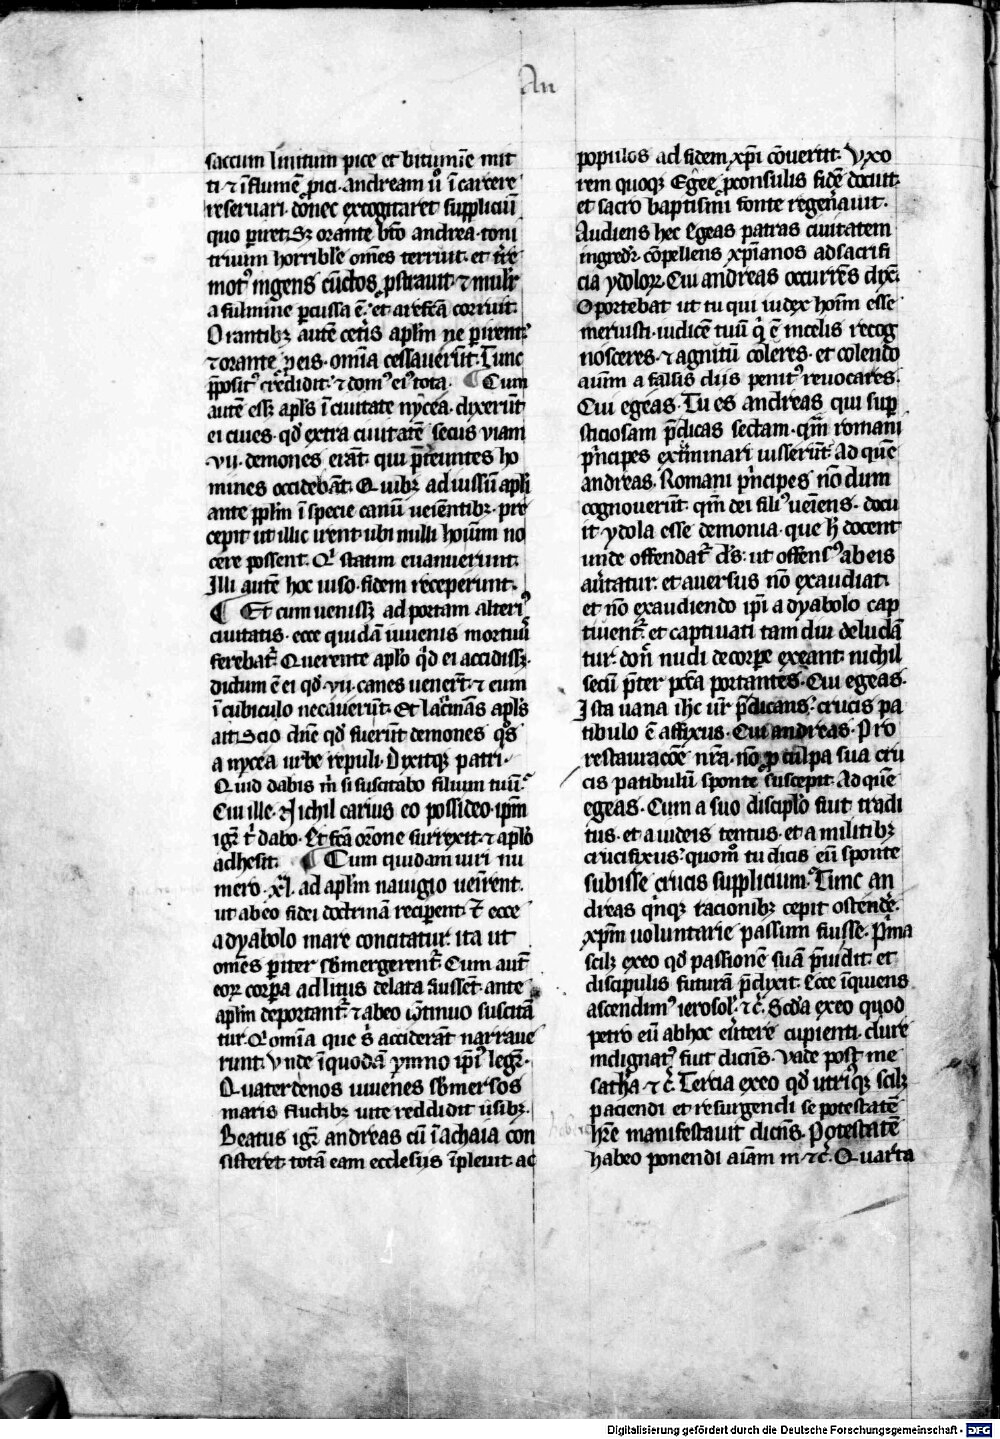 An
saccum linitum pice et bitumīe mit
ti ⁊ ī flumē ꝓici. andream ů ī carcere
reseruari. donec excogitaret suppliciū
quo ꝑiret. Sꝫ orante bt̄o andrea. toni
trium horribile om̄es terruit. et tr̄re
motꝰ ingens cūctos ꝓstrauit. ⁊ mulr̄
a fulmine ꝑcussa ē. et arefc̄a corruit.
Orantibꝫ autē cetīs aplm̄ ne ꝑirent.
⁊ orante ꝓ eis. omīa cessauerūt. Tunc
p̄positꝰ credidit. ⁊ domꝰ eiꝰ tota. ¶ Cum
autē essꝫ apl̄s ī ciuitate nycea. dixerūt
ei ciues. qd̄ extra ciuitatē secus viam
.vii. demones erāt. qui p̄tereuntes ho
mines occidebāt. Quibꝫ ad iussū apl̄i
ante ppl̄m ī specie canū ueīentibꝫ. pre
cepit ut illic irent ubi nulli hoīum no
cere possent. Qi statim euanuerunt.
Illi autē hoc uiso. fidem receperunt.
¶ Et cum uenissꝫ ad portam alteriꝰ
ciuitatis. ecce quidā iuuenis mortuꝰ
ferebat᷑. Querente apl̄o qd̄ ei accidissꝫ.
dictum ē ei qd̄ .vii. canes uener̄t. ⁊ eum
ī cubiculo necauerūt. Et lac̄mās apl̄s
ait. Scio dn̄e qd̄ fuerūt demones q̊s
a nycea urbe repuli. Dixitqꝫ patri.
Quid dabis m̄ si suscitabo filium tuū.
Cui ille. Nichil carius eo possideo. ip̄m
igr̄ t̄ dabo. Et fc̄a or̄one surrexit. ⁊ apl̄o
adhesit. ¶ Cum quidam uiri nu
mero .xl. ad aplm̄ nauigio uen̄rent.
ut ab eo fidei doctrinā reciꝑent. ⁊ ecce
a dyabolo mare concitatur. ita ut
om̄es ꝑiter sb̄mergerent᷑. Cum aut̄
eoꝝ corꝑa ad litus delata fuisset. ante
aplm̄ deportant᷑. ⁊ ab eo ꝯtinuo suscitā
tur. Qi omīa que s̄ acciderāt narraue
runt. Vnde ī quodā ymno ip̄iꝰ legr̄.
Quaterdenos iuuenes sb̄mersos
maris fluctibꝫ uite reddidit usibꝫ.
Beatus igr̄ andreas cū ī achaia con
sisteret totā eam ecclesiis īpleuit. ac
populos ad fidem xp̄i cōuertit. Vxo
rem quoqꝫ Egee ꝓconsulis fidē docuit.
et sacro baptismi fonte regen̄auit.
Audiens hec Egeas patras ciuitatem
ingredr̄. cōpellens xp̄ianos ad sacrifi
cia ydoloꝝ. Cui andreas occurrēs dix̄.
Oportebat ut tu qui iudex hoīm esse
meruisti. iudicē tuū q̄ ē in celis recog
nosceres. ⁊ agnitū coleres. et colendo
aīum a falsis diis penitꝰ reuocares.
Cui egeas. Tu es andreas qui suꝑ
sticiosam p̄dicas sectam. qm̄ romani
p̄ncipes exterminari iusserūt. Ad quē
andreas. Romani p̄ncipes nō dum
cognouerūt. qm̄ dei filiꝰ ueīens. docu
it ydola esse demonia. que h̄ docent
unde offendat᷑ ds̄. ut offensꝰ ab eis
au̅tatur. et auersus nō exaudiat.
et nō exaudiendo ip̄i a dyabolo cap
tiuent᷑. et captiuati tam diu deludā
tur. don̄ nudi de corꝑe exeant. nichil
secū p̄ter pc̄ca portantes. Cui egeas.
Ista uana ihc̄ ur̄ p̄dicans. crucis pa
tibulo ē affixus. Cui andreas. Pro
restauracōe nr̄a. nō ꝓ culpa sua cru
cis patibulū sponte suscepit. Ad quē
egeas. Cum a suo discipl̄o fiut tradi
tus. et a iudeis tentus. et a militibꝫ
crucifixus. quom̊ tu dicis eū sponte
subisse crucis supplicium. Tunc an
dreas qinqꝫ racionibꝫ cepit ostende̅.
xp̄m uoluntarie passum fuisse. Pima
scilꝫ ex eo qd̄ passionē suā p̄uidit. et
discipulis futurā p̄dixit. Ecce ī quiens
ascendimꝰ ierosol̄. ⁊c̄. Scd̄a ex eo quod
petro eū ab hoc eu̅tere cupienti. dure
indignatꝰ fiut dicēs. Vade post me
sathā. ⁊c̄. Tercia ex eo qd̄ utriꝰqꝫ scilꝫ
paciendi et resurgendi se potestatē
hr̄e manifestauit dicēs. Potestatē
habeo ponendi aīam m̄. ⁊c̄. Quarta
Digitalisierung gefördert durch die Deutsche Forschungsgemeinschaft - DFG